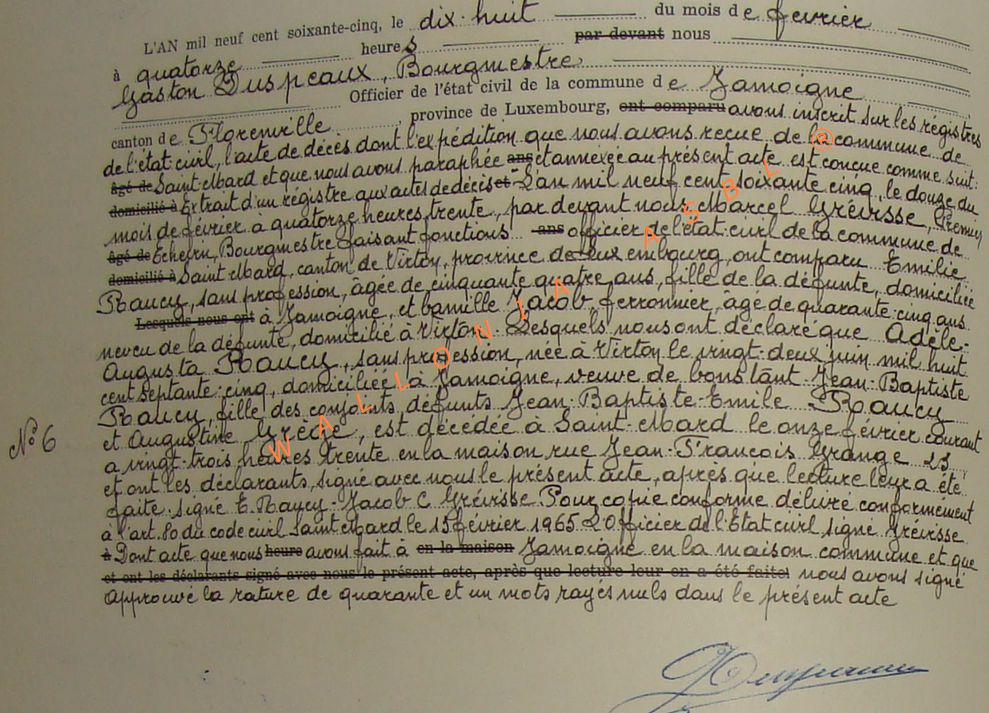 L'AN mil neuf cent soixante-cinq, le dix-huit du mois de février
à quatorze heures par devant nous
Gaston Duspeaux, Bourgmestre
Officier de l'état civil de la commune de Jamoigne
canton de Florenville, province de Luxembourg, ont comparu avons inscrit sur les régistres
de l'état civil, l'acte de décès dont l'expédition que nous avons recue de la commune de
âgé de Saint-Mard et que nous avons paraphée ans et annexée au présent acte est concue comme suit:
domicilié à Extrait d'un régistre aux actes de décès et "L'an mil neuf cent soixante cinq, le douze du
mois de février à quatorze heures trente, par devant nous Marcel Grévisse, Premier
âgé de Echevin, Bourgmestre faisant fonctions ans officier de l'état civil de la commune de
domicilié à Saint-Mard, canton de Virton, province de Luxembourg, ont comparu Emilie
Raucy, sans profession, âgée de cinquante quatre ans, fille de la défunte, domiciliée
Lesquels nous ont à Jamoigne, et Camille Jacob, ferronnier, âgé de quarante-cinq ans
neveu de la défunte, domicilié à Virton. Lesquels nous ont déclaré que Adèle-
Augusta Raucy, sans profession, née à Virton le vingt-deux juin mil huit
cent septante-cinq, domiciliée à Jamoigne, veuve de Constant Jean-Baptiste
Raucy, fille des conjoints défunts Jean-Baptiste-Emile Raucy
et Augustine Grège, est décédée à Saint-Mard le onze février courant
N° 6
a vingt-trois heures trente en la maison rue Jean-François Grange 23
et ont les déclarants, signé avec nous le présent acte, après que lecture leur a été
faite. signé E. Raucy - Jacob C Grévisse Pour copie conforme délivré conformement
à l'art. 80 du code civil Saint Mard le 15 février 1965. L'Officier de l'Etat civil signé Grévisse
à Dont acte que nous heure avons fait à en la maison Jamoigne en la maison commune et que
et ont les déclarants signé avec nous le présent acte, après que lecture leur en a été faite. nous avons signé
Approuvé la rature de quarante et un mots rayés nuls dans le présent acte
WALLONIA ASBL @